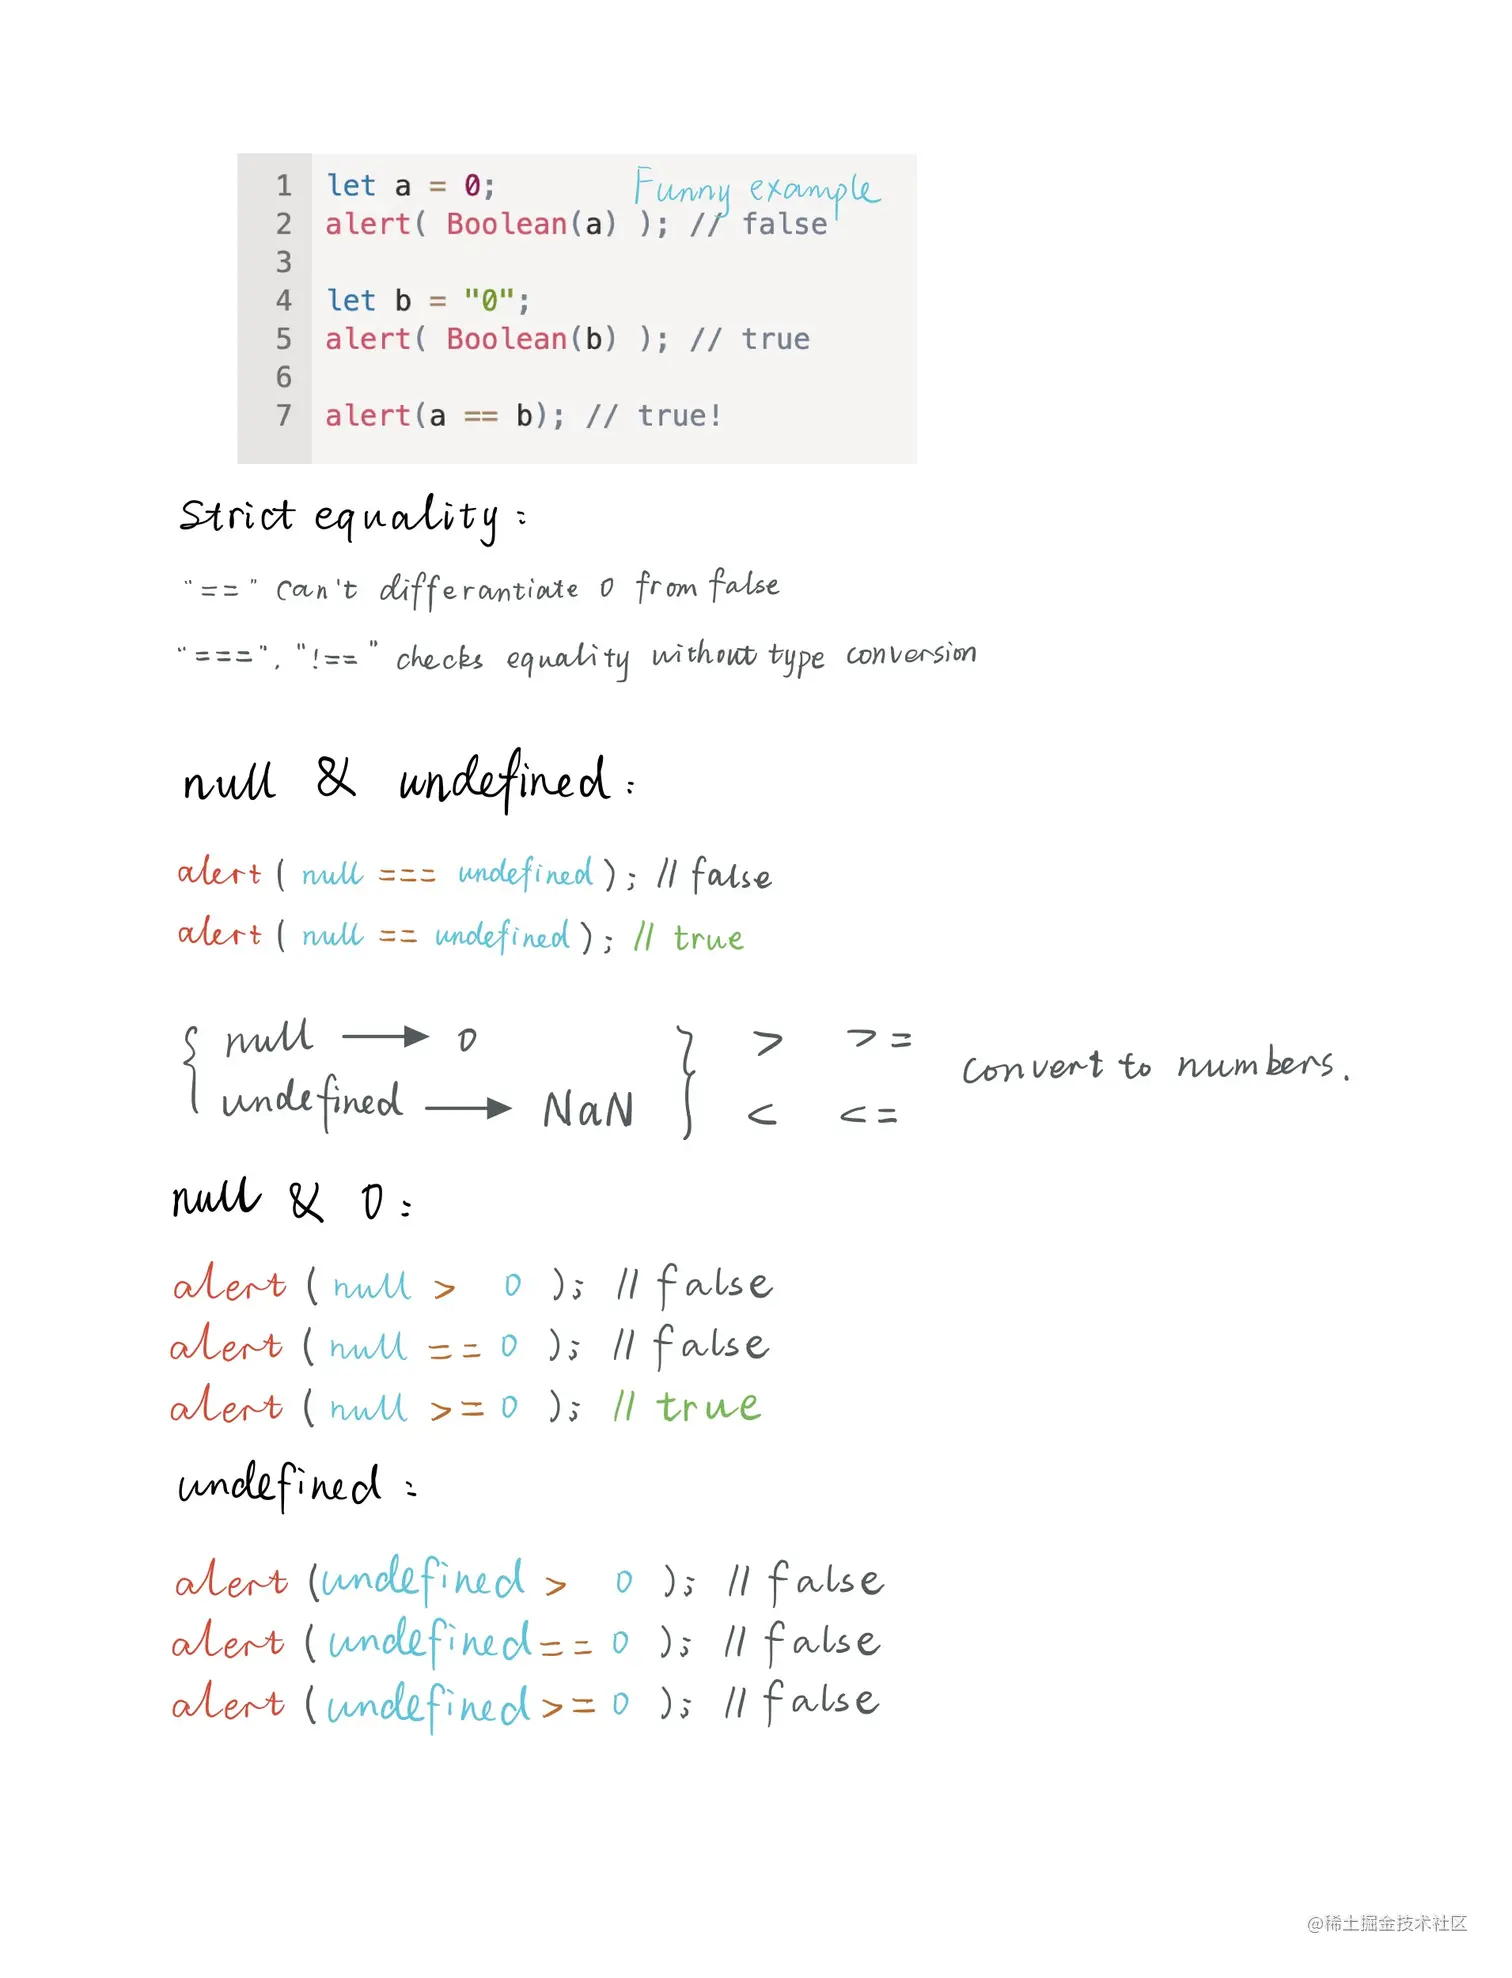 1 let a = 0; Funny example
2 alert( Boolean(a) ); // false
3
4 let b = "0";
5 alert( Boolean(b) ); // true
6
7 alert(a == b); // true!
Strict equality:
"==" can't differantiate 0 from false
"===", "!==" checks equality without type conversion
null & undefined:
alert( null === undefined); // false
alert( null == undefined); // true
{ null → 0 } > >= convert to numbers.
undefined → NaN < <=
null & 0:
alert( null > 0 ); // false
alert( null == 0 ); // false
alert( null >= 0 ); // true
undefined:
alert (undefined > 0 ); // false
alert (undefined == 0 ); // false
alert (undefined >= 0 ); // false
@稀土掘金技术社区